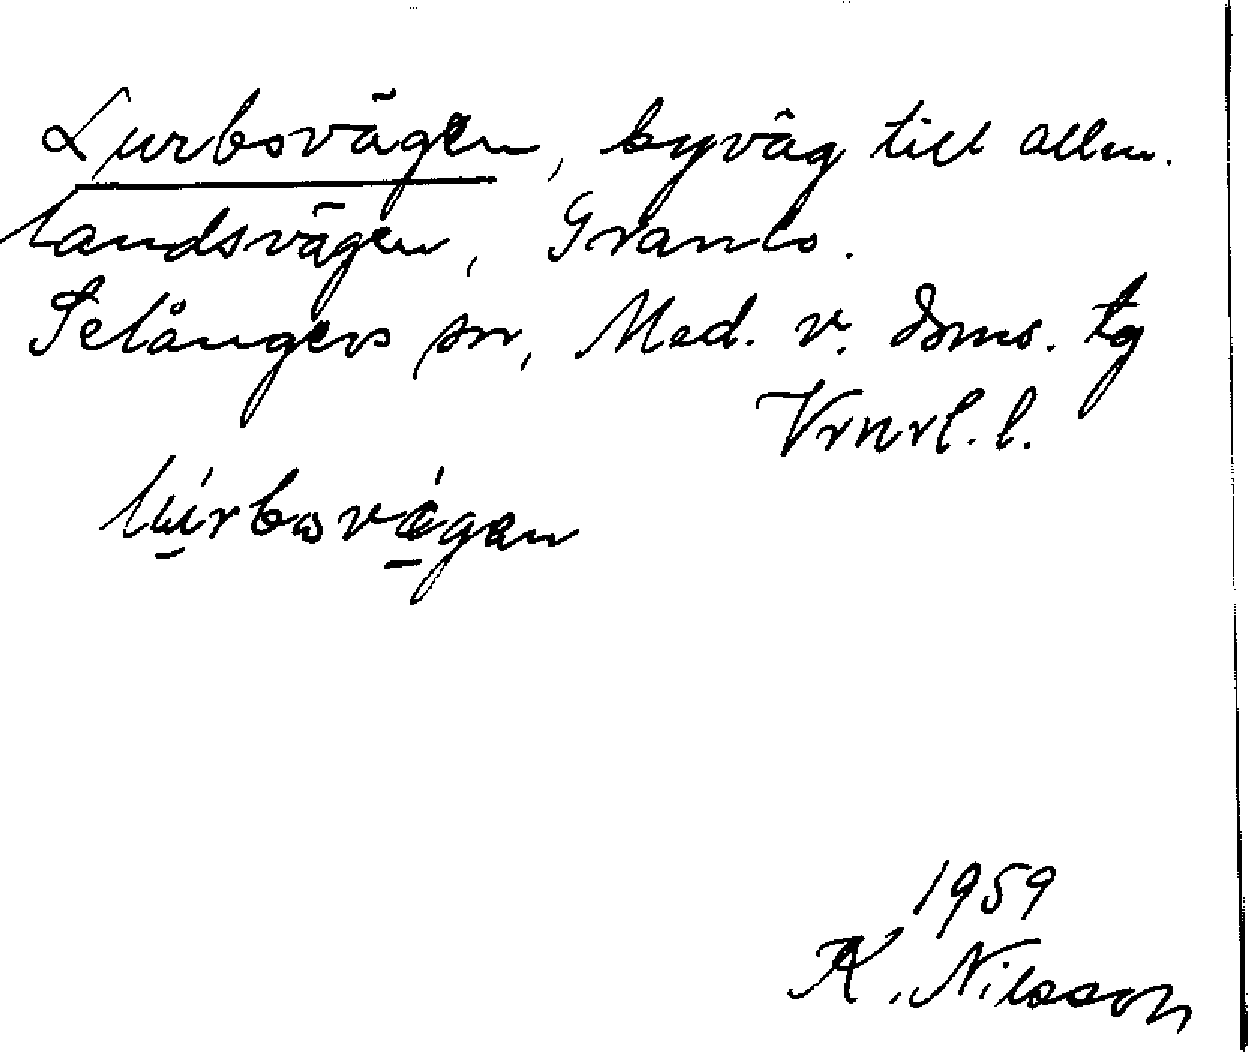 Lurbovägen, byväg till allm.
landsvägen, Granlo.
Selångers sn, Med. v. doms. tg
Vrnrl. l.
lúrbovę́gen
1959
K. Nilsson